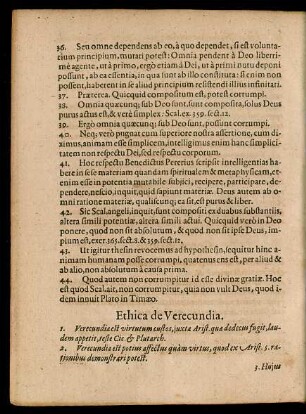 36. Seu omne dependens ab eo, à quo dependet, si est volunta-
rium principium, mutari potest: Omnia pendent à Deo liberri-
mè agente, ut à primo, ergò etiam à Dei, ut à primi nutu deponi
possunt, ab ea essentia, in qua sunt ab illo constituta: si enim non
possent, haberent in se aliud principium resistendi illius infinitati.
37. Præterea. Quicquid compositum est, potest corrumpi.
38. Omnia quæcunq; sub Deo sunt, sunt composita, solus Deus
purus actus est, & verè simplex: Scal. ex. 359. sect. 12.
39. Ergò omnia quæcunq; sub Deo, possunt corrumpi.
40. Neq; verò pugnat cum superiore nostra assertione, cum di-
ximus, animam esse simplicem, intelligimus enim hanc simplici-
tatem non respectu Dei, sed respectu corporum.
41. Hoc respectu Benedictus Pererius scripsit intelligentias ha-
bere in sese materiam quandam spiritualem & metaphysicam, et-
enim esse in potentia mutabile subjici, recipere, participare, de-
pendere, nescio, inquit, quid sapiunt materiæ. Deus autem ab o-
mni ratione materiæ, qualicunq; ea sit, est purus & liber.
42. Sic Scal. angeli, inquit, sunt compositi ex duabus subftantiis,
altera simili potentiæ, altera simili actui. Quicquid verò in Deo
ponere, quod non sit absolutum, & quod non sit ipse Deus, im-
pium est, exer. 365. sect. 8. & 359. sect. 12.
43. Ut igitur thesin revocemus ad hypothesin, sequitur hinc a-
nimam humanam posse corrumpi, quatenus est ens ab alio, & ab
alio, non absolutum à causa prima.
44. Quod autem non corrumpitur id esse divinæ gratiæ. Hoc
est quod Scal. ait, non corrumpitur, quia non vult Deus, quod i-
dem innuit Plato in Timæo.
Ethica de Verecundia.
1. Verecundia est virtutum custos, juxta Arist. quæ dedecus fugit, lau-
dem appetit, teste Cic. & Plutarch.
2. Verecundia est potius affectus quàm virtus, quod ex Arist. 3. ra-
tionibus demonstrari potest.
3. Hujus